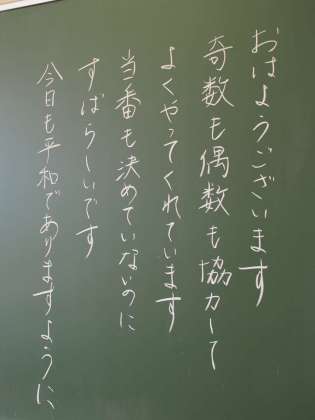 おはようございます
奇数も偶数も協力して
よくやってくれています
当番も決めていないのに
すばらしいです
今日も平和でありますように、